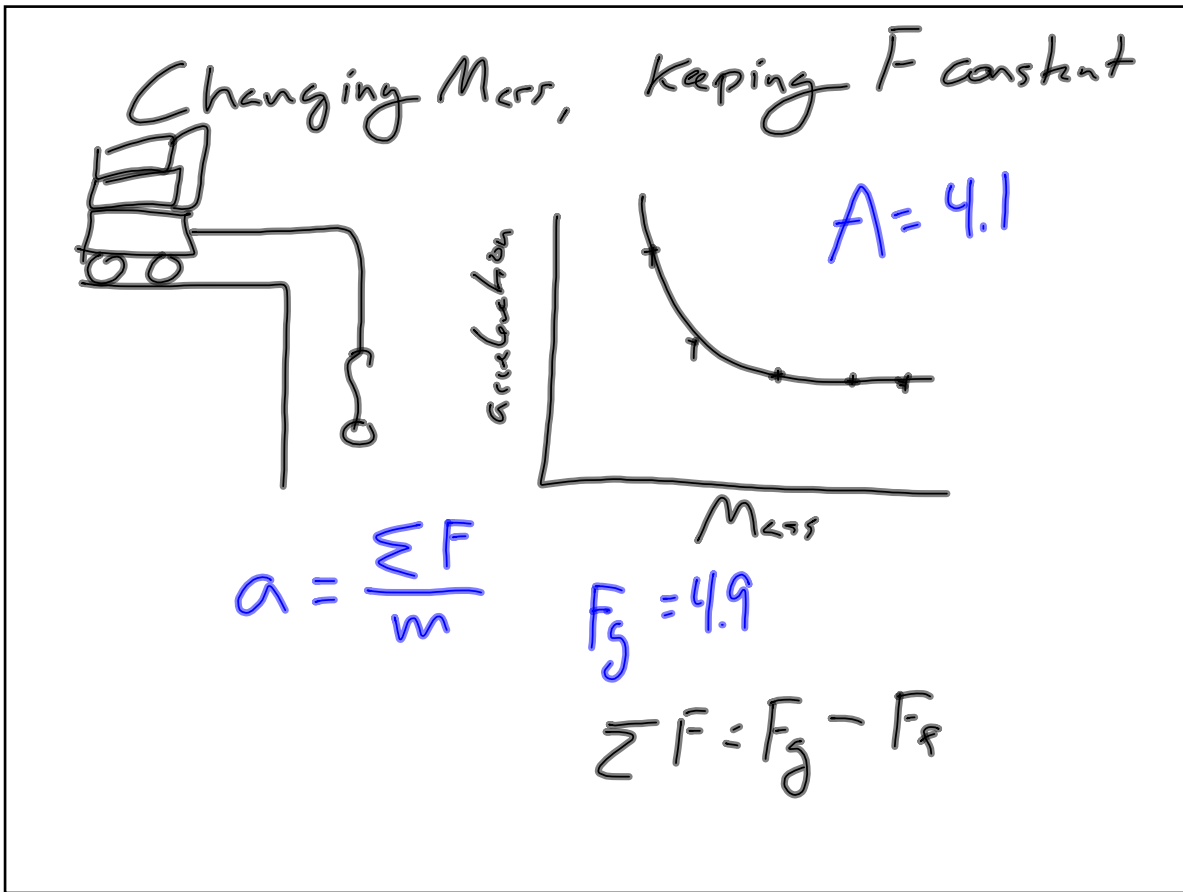 Changing Mass, Keeping F constant
A = 4.1
acceleration
Mass
a = ΣF/m
Fg = 4.9
ΣF = Fg - Ff